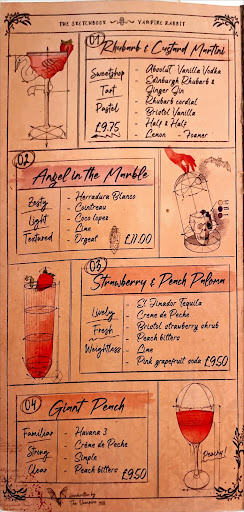 THE SKETCHBOOK VAMPIRE RABBIT
01 Rhubarb & Custard Martini
Sweetshop
Tart
Pastel
£9.75
- Absolut Vanilla Vodka
- Edinburgh Rhubarb &
Ginger Gin
- Rhubarb cordial
- Bristol Vanilla
- Half & Half
- Lemon - Foamer
02 Angel in the Marble
Zesty - Herradura Blanco
Light - Cointreau
Textured - Coco lopez
- Lime
- Orgeat £11.00
03 Strawberry & Peach Paloma
Lively - El Jimador Tequila
Fresh - Creme de Peche
Weightless - Bristol strawberry shrub
- Peach bitters
- Lime
- Pink grapefruit soda £9.50
04 Giant Peach
Familiar - Havana 3
Strong - Crème de Peche
Clear - Simple
- Peach bitters £9.50
Peachy!
Handwritten by
The Vampire